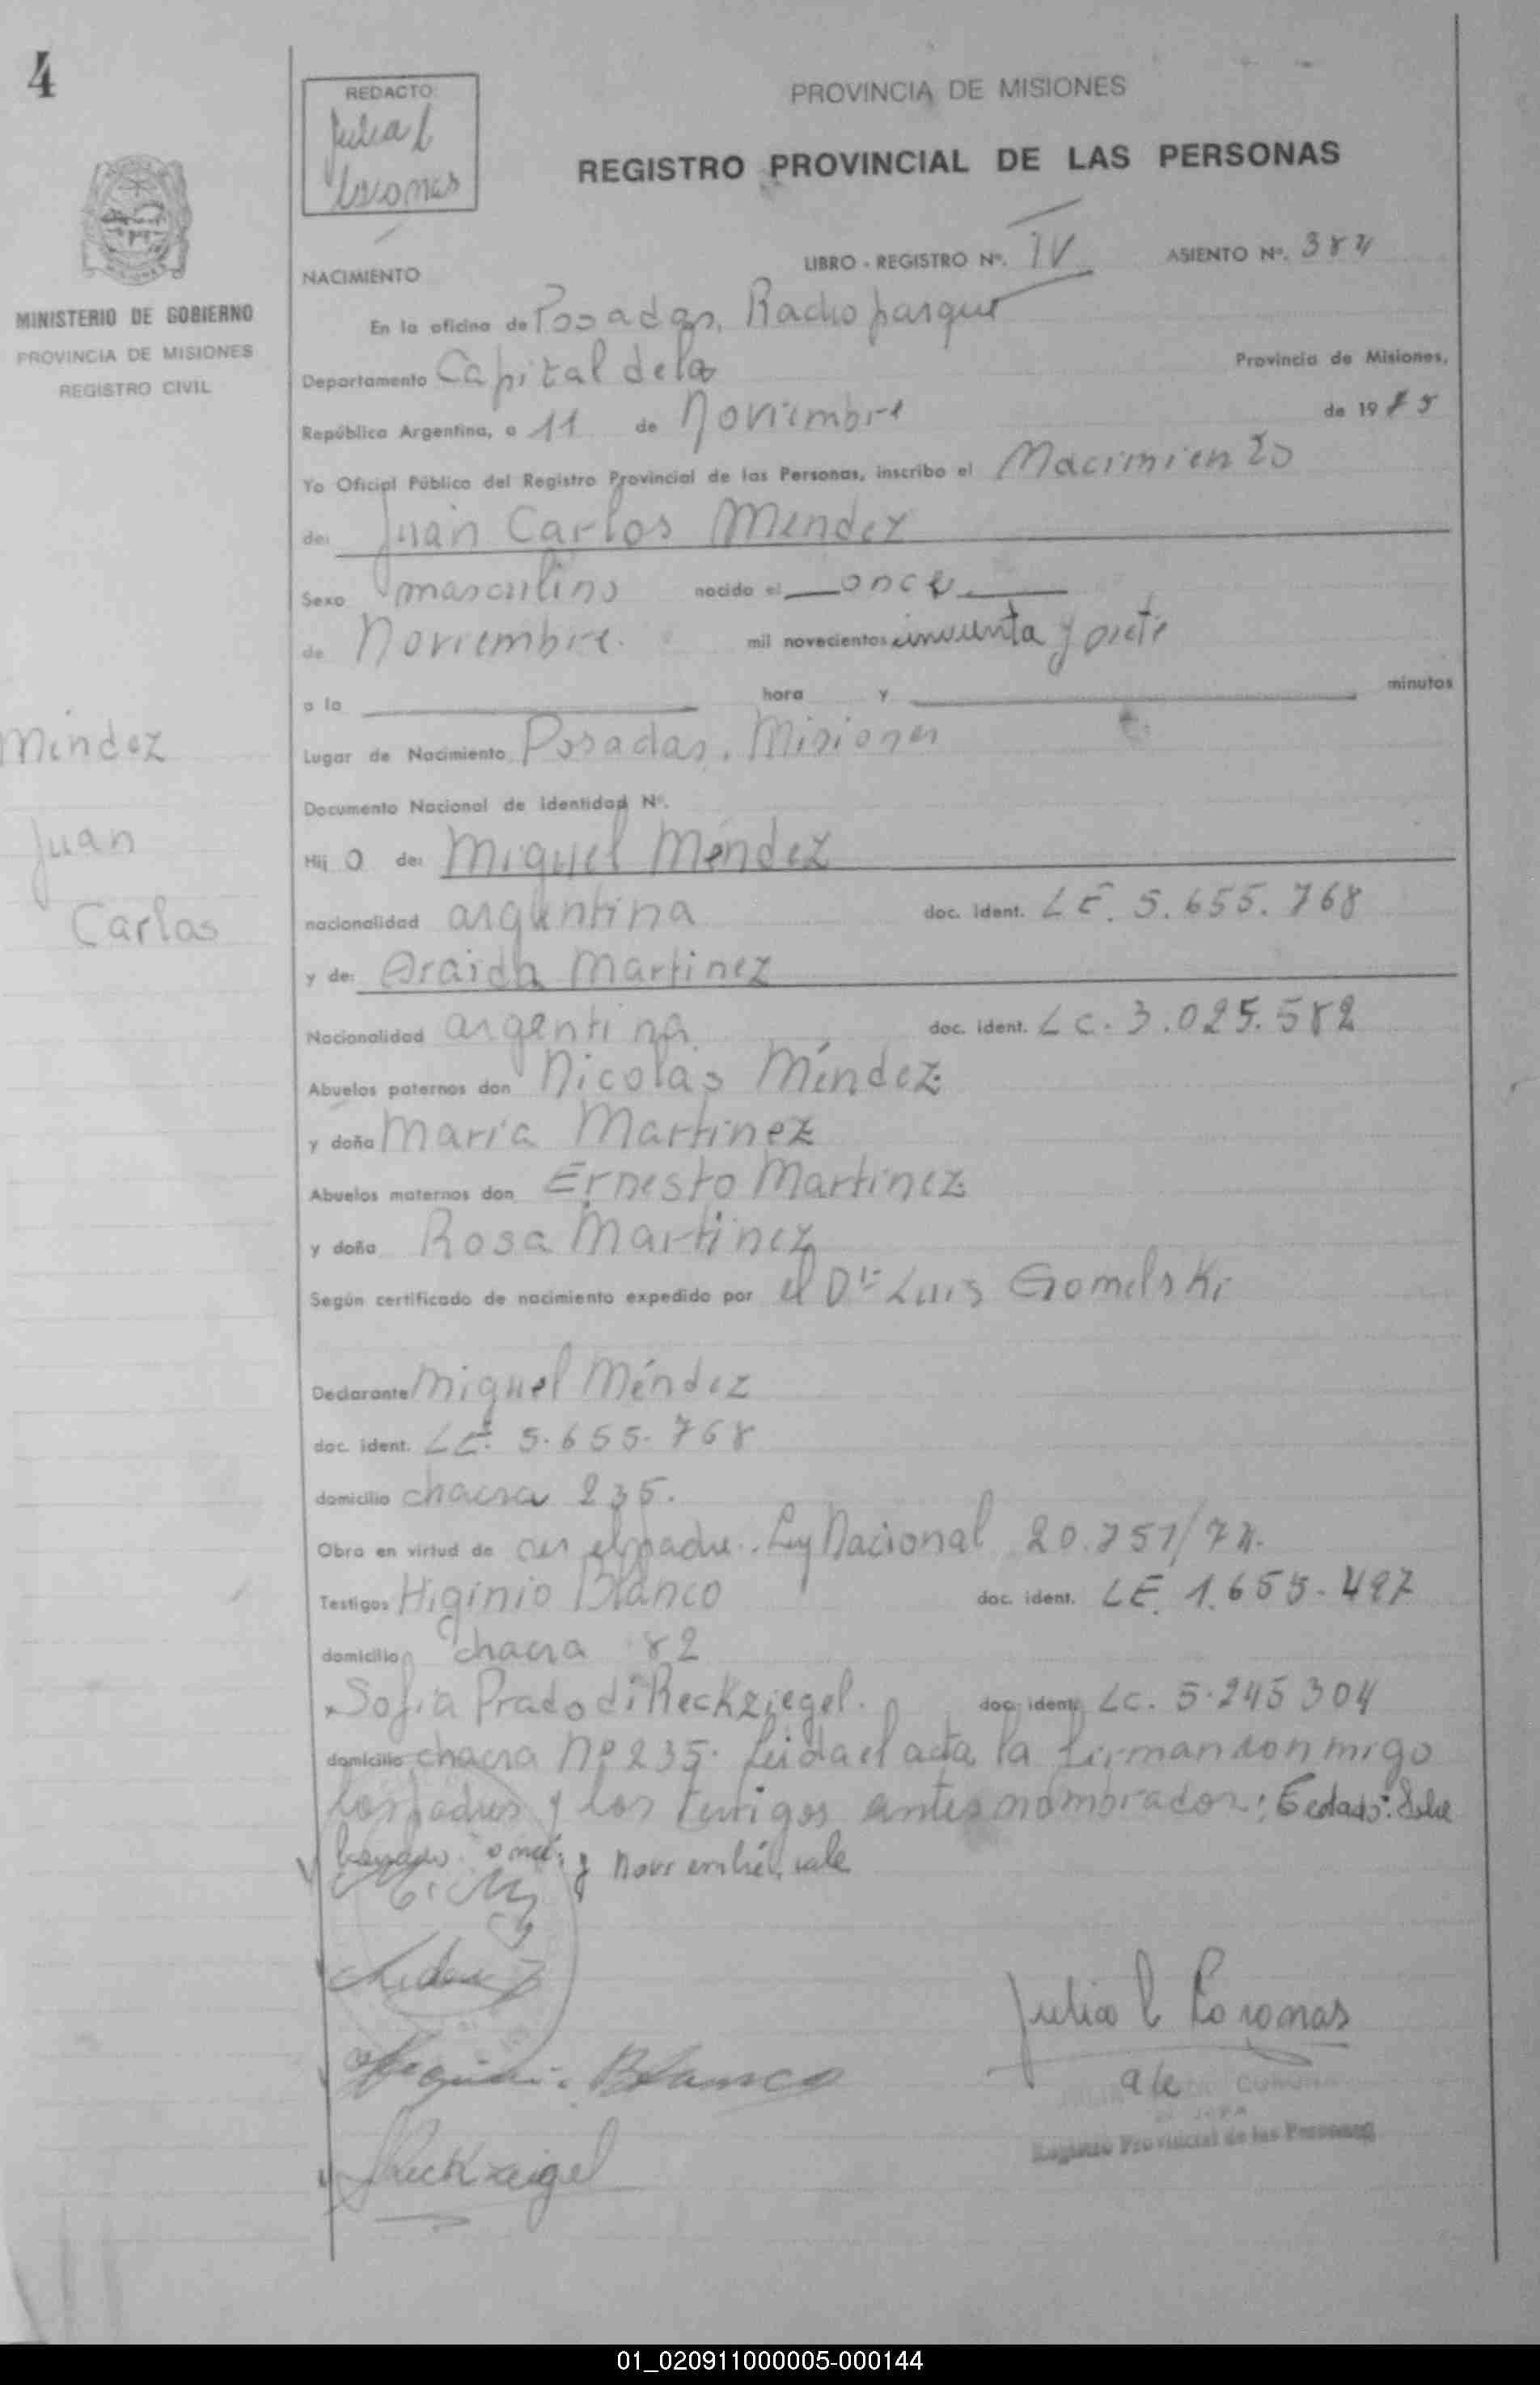 4
REDACTO:
Julia C
Coronas
PROVINCIA DE MISIONES
REGISTRO PROVINCIAL DE LAS PERSONAS
MINISTERIO DE GOBIERNO
PROVINCIA DE MISIONES
REGISTRO CIVIL
NACIMIENTO LIBRO - REGISTRO Nº. IV ASIENTO Nº. 384
En la oficina de Posadas, Radioparque
Departamento Capital de la Provincia de Misiones,
República Argentina, a 11 de Noviembre de 19
Yo Oficial Público del Registro Provincial de las Personas, inscribo el Nacimiento
de: Juan Carlos Mendez
Sexo masculino nacido el once
de Noviembre. mil novecientos cincuenta y siete
a la hora y minutos
Lugar de Nacimiento Posadas, Misiones
Documento Nacional de Identidad Nº.
Méndez
Juan
Carlos
Hij o de: Miguel Méndez
nacionalidad argentina doc. ident. L E. 5.655.768
y de: Martinez
Nacionalidad argentina doc. ident. L C. 3.025.582
Abuelos paternos don Nicolás Méndez
y doña María Martinez
Abuelos maternos don Ernesto Martinez
y doña Rosa Martinez
Según certificado de nacimiento expedido por el Dr Luis Gomelski
Declarante Miguel Méndez
doc. ident. L E. 5.655.768
domicilio chacra 235.
Obra en virtud de ser el padre. Ley Nacional 20.751/74.
Testigos Higinio Blanco doc. ident. LE. 1.655.497
domicilio chacra 82
Sofia Prado de Reckziegel. doc. ident. Lc. 5.245304
domicilio chacra Nº 235. Leida el acta la firman conmigo
los padres y los testigos antes nombrados:
once, y Noviembre, vale
Mendez
Higinio Blanco
Reckzeigel
Julia C Coronas
Registro Provincial de las Personas
01_020911000005-000144